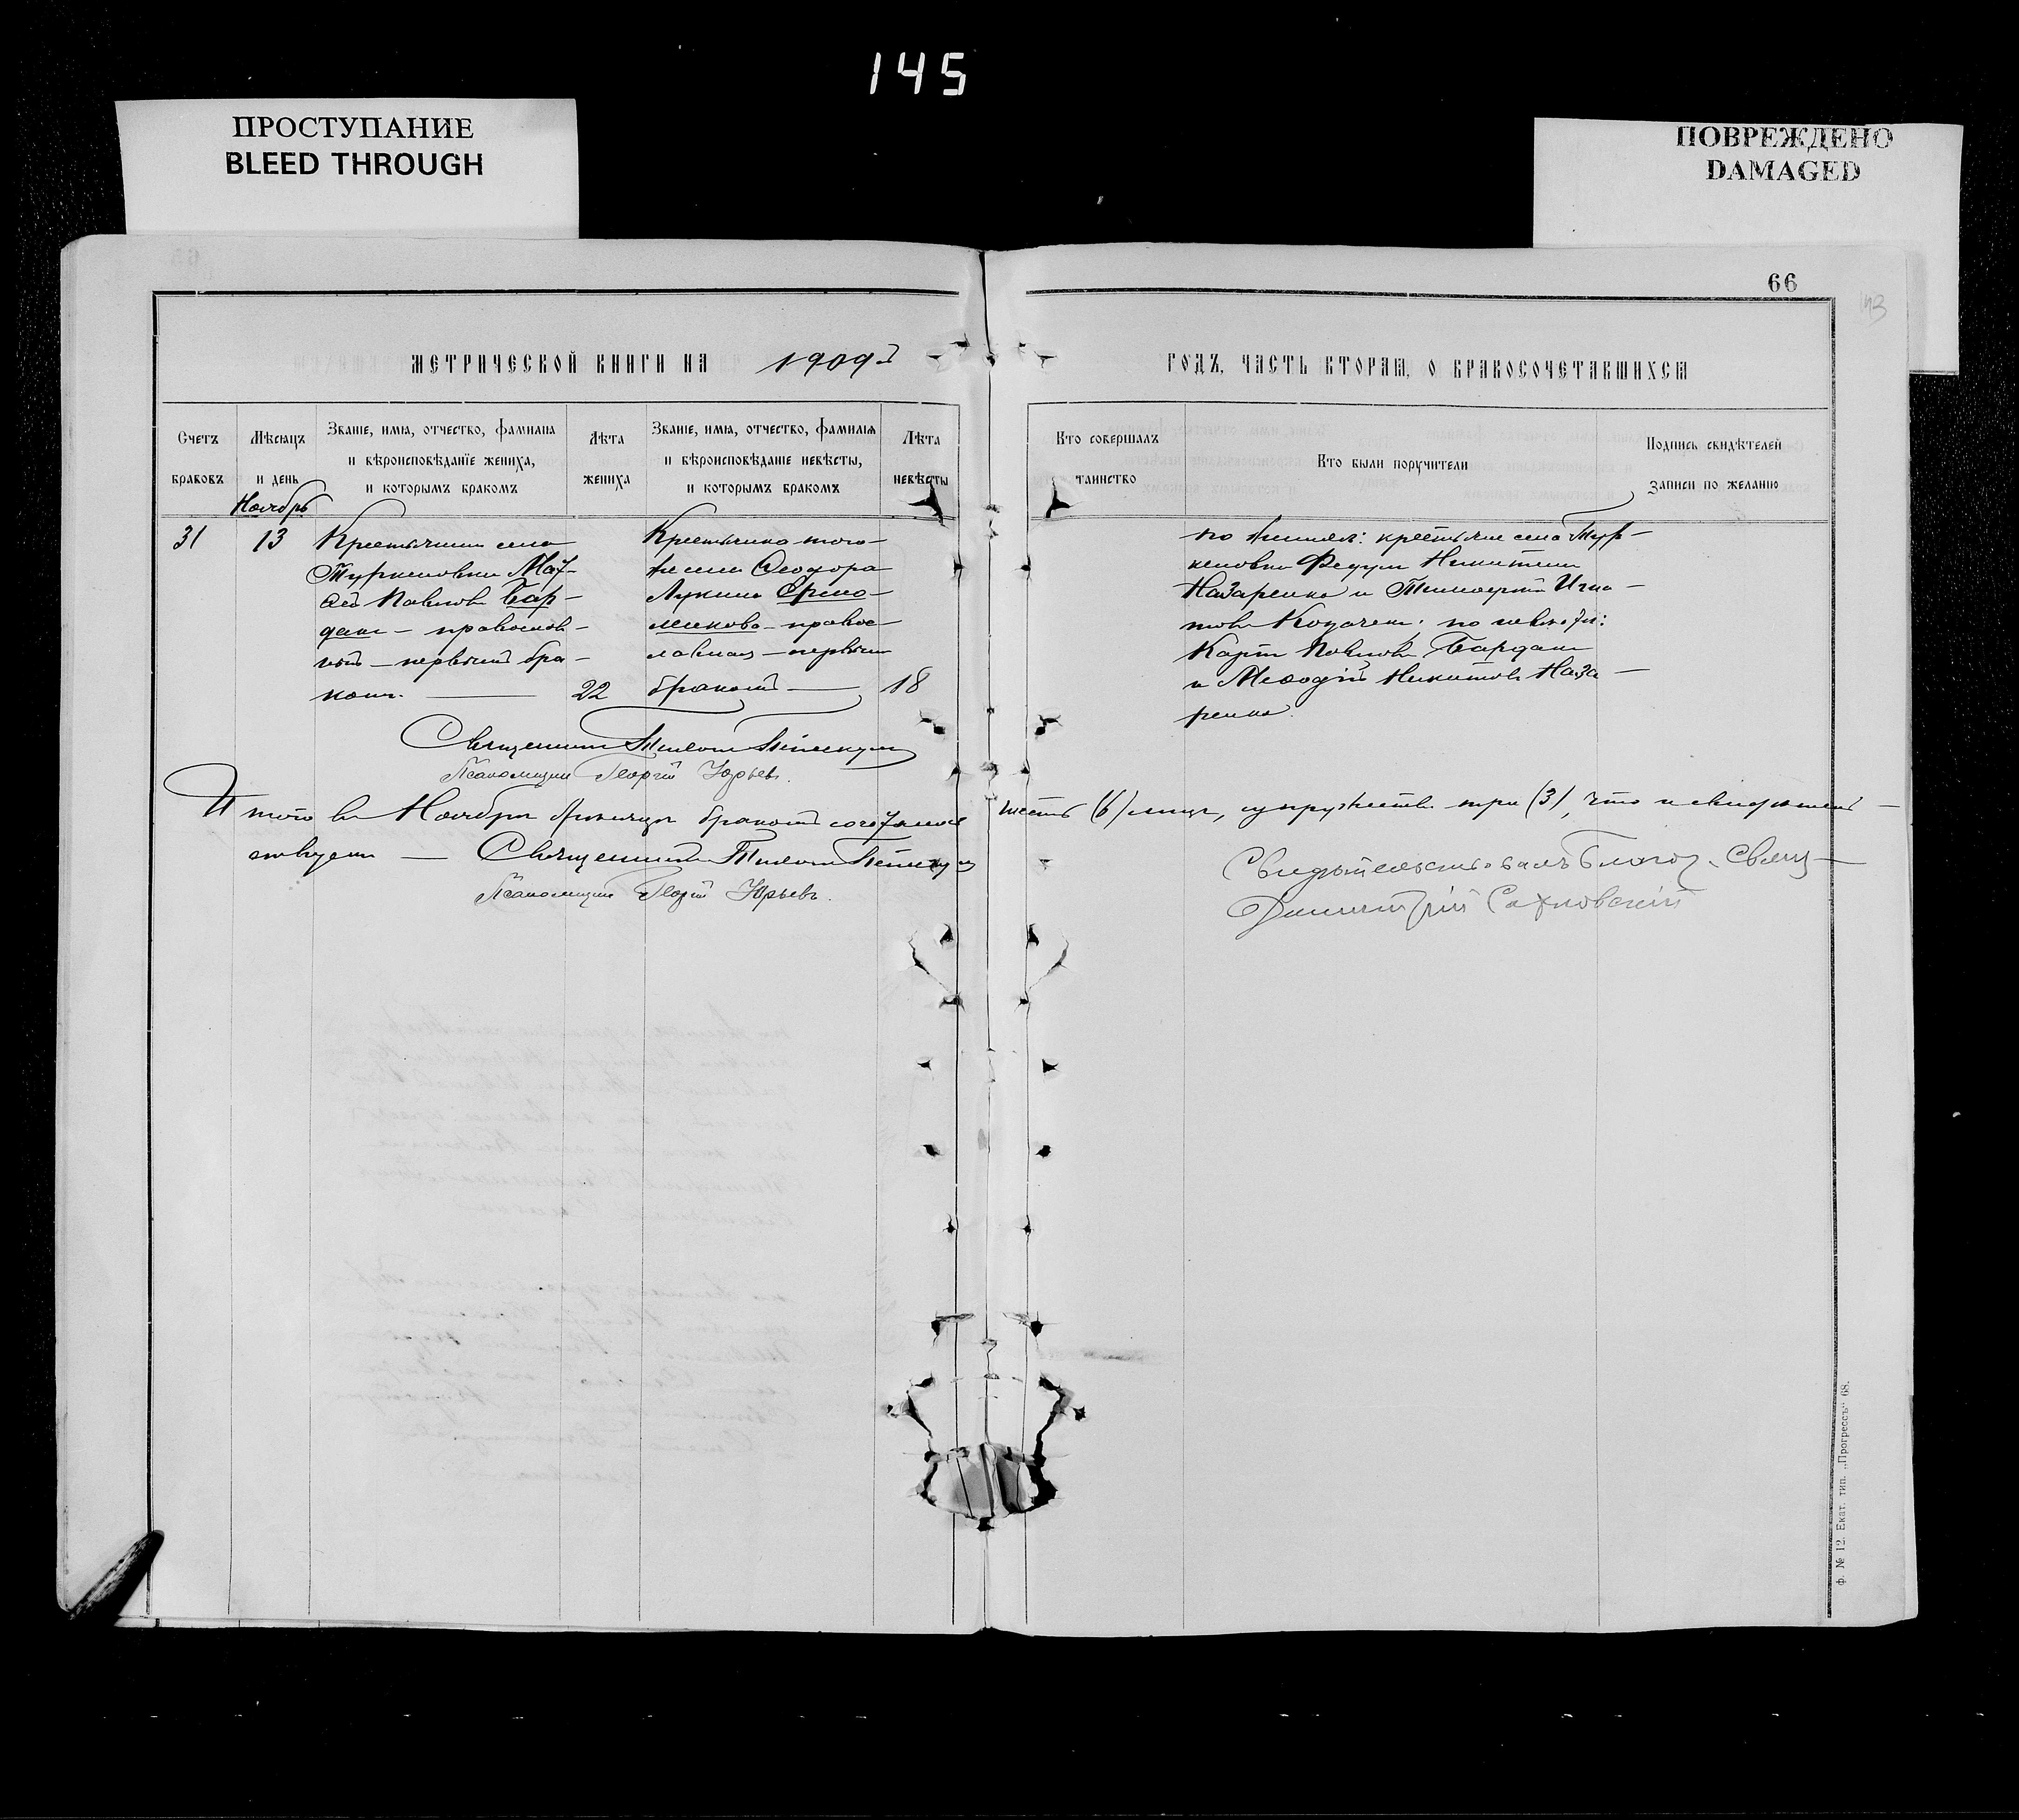 145
ПРОСТУПАНИЕ
BLEED THROUGH
ПОВРЕЖДЕНО
DAMAGED
66
143
МЕТРИЧЕСКОЙ КНИГИ НА 1909й
ГОДЪ, ЧАСТЬ ВТОРАЯ, О БРАКОСОЧЕТАВШИХСЯ
Счетъ браковъ
Мѣсяцъ и день
Званіе, имя, отчество, фамилія
и вѣроисповѣданіе жениха,
и которымъ бракомъ
Лѣта жениха
Званіе, имя, отчество, фамилія
и вѣроисповѣданіе невѣсты,
и которымъ бракомъ
Лѣта невѣсты
Кто совершалъ таинство
Кто были поручители
Подпись свидѣтелей
записи по желанію
Ноябрь
31
13
Крестьянинъ села
Туркеновки Мат-
ѳей Павловъ Бар-
данъ - православ-
ный - первымъ бра-
комъ. —
22
Крестьянка того-
же села Ѳеодора
Лукина
- правос-
лавная - первымъ
бракомъ —
18
по женихѣ: крестьяне села Тур-
кеновки Федул Никитинъ
Назаренко и Тимоѳей Игна-
товъ; по невѣстѣ:
Карпъ Павловъ Барданъ
и Меѳодій Никитовъ Наза-
ренко.
Священникъ
Псаломщикъ Георгій Юрьевъ.
Итого въ Ноябрѣ мѣсяцѣ бракомъ сочеталось шесть (6) лицъ, супружествъ три (3), что и свидѣтель-
ствуемъ — Священникъ
Псаломщикъ Георгій Юрьевъ.
Свидѣтельствовалъ Благоч. Свящ-
Димитрій Сахновскій
ф. № 12. Екат. тип. „Прогрессъ“ 68.